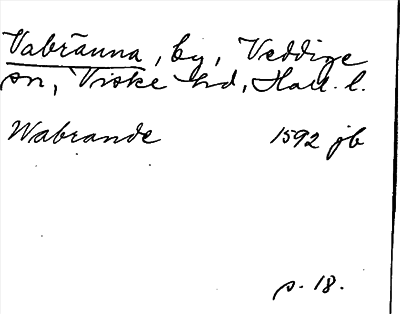 Vabränna, by, Veddige
sn, Viske hd, Hall. l.
Wabrande 1592 jb
s. 18.